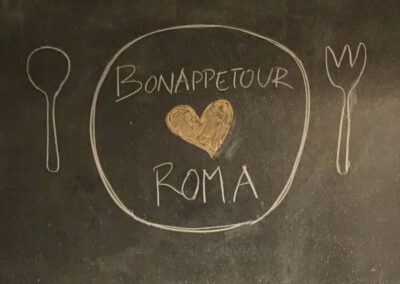 BONAPPETOUR
ROMA